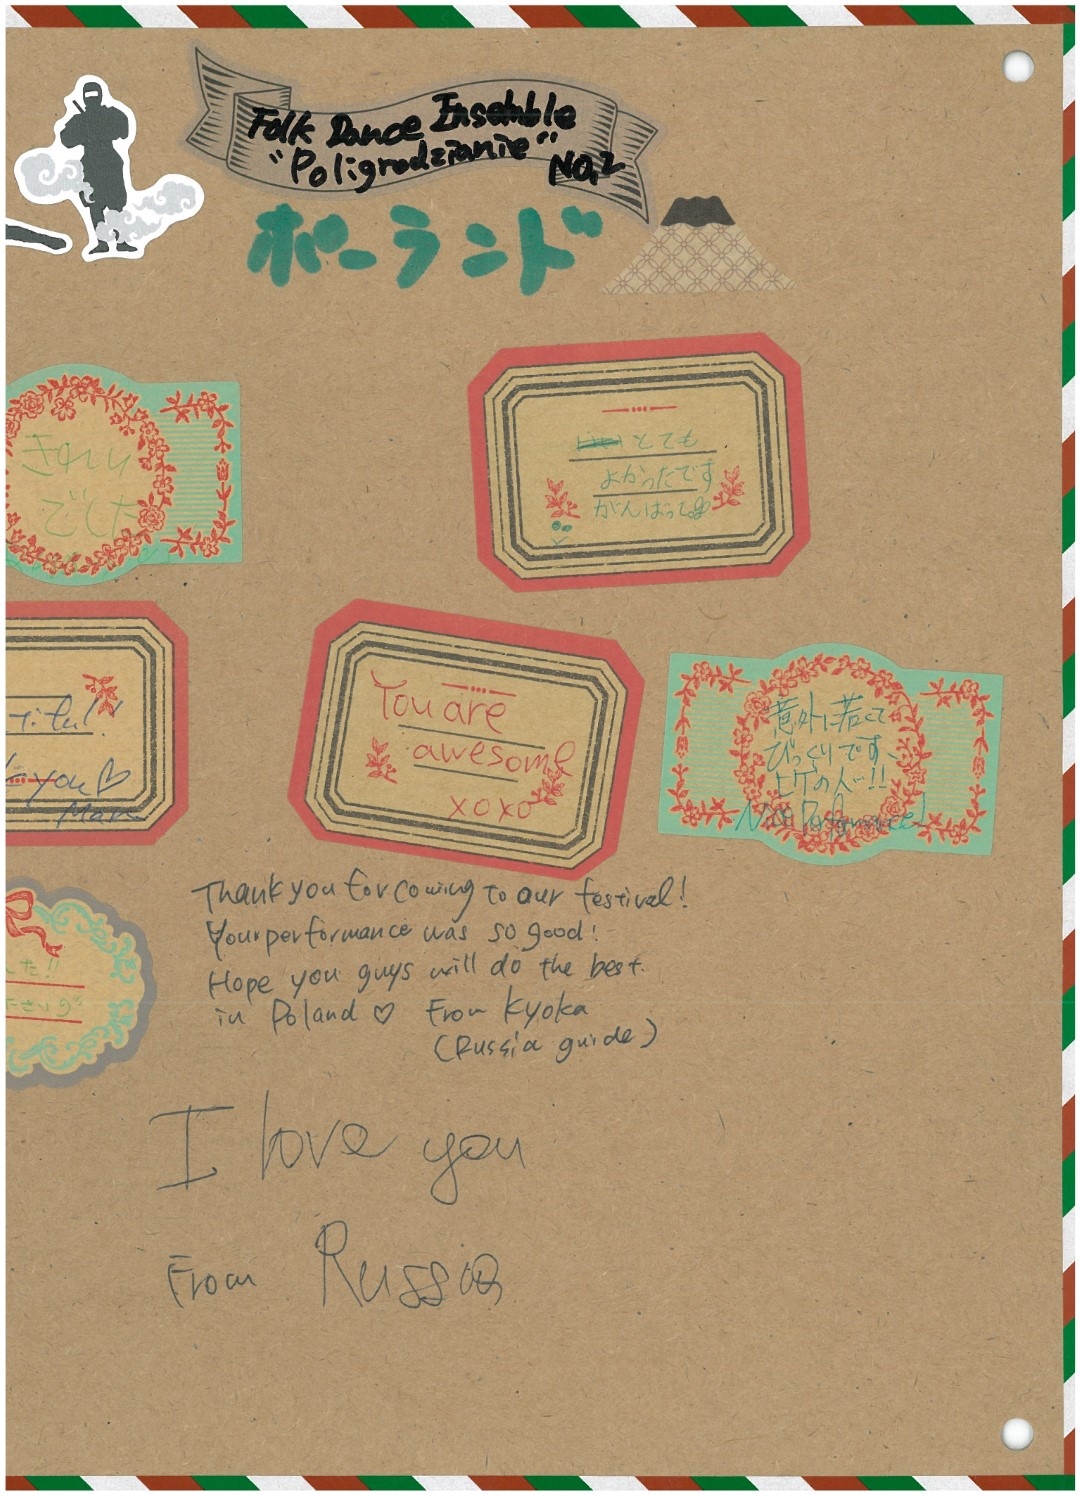 Folk Dance Ensemble
"Poligrodzianie"
No.2
ポーランド
きれい
でした
とても
よかったです
がんばって
You are
awesome
xoxo
意外に若くて
びっくりです、
ヒゲの人!!
you♡
Thank you for coming to our festival!
Your performance was so good!
Hope you guys will do the best
in Poland ♡ From Kyoka
(Russia guide)
I love you
From Russia